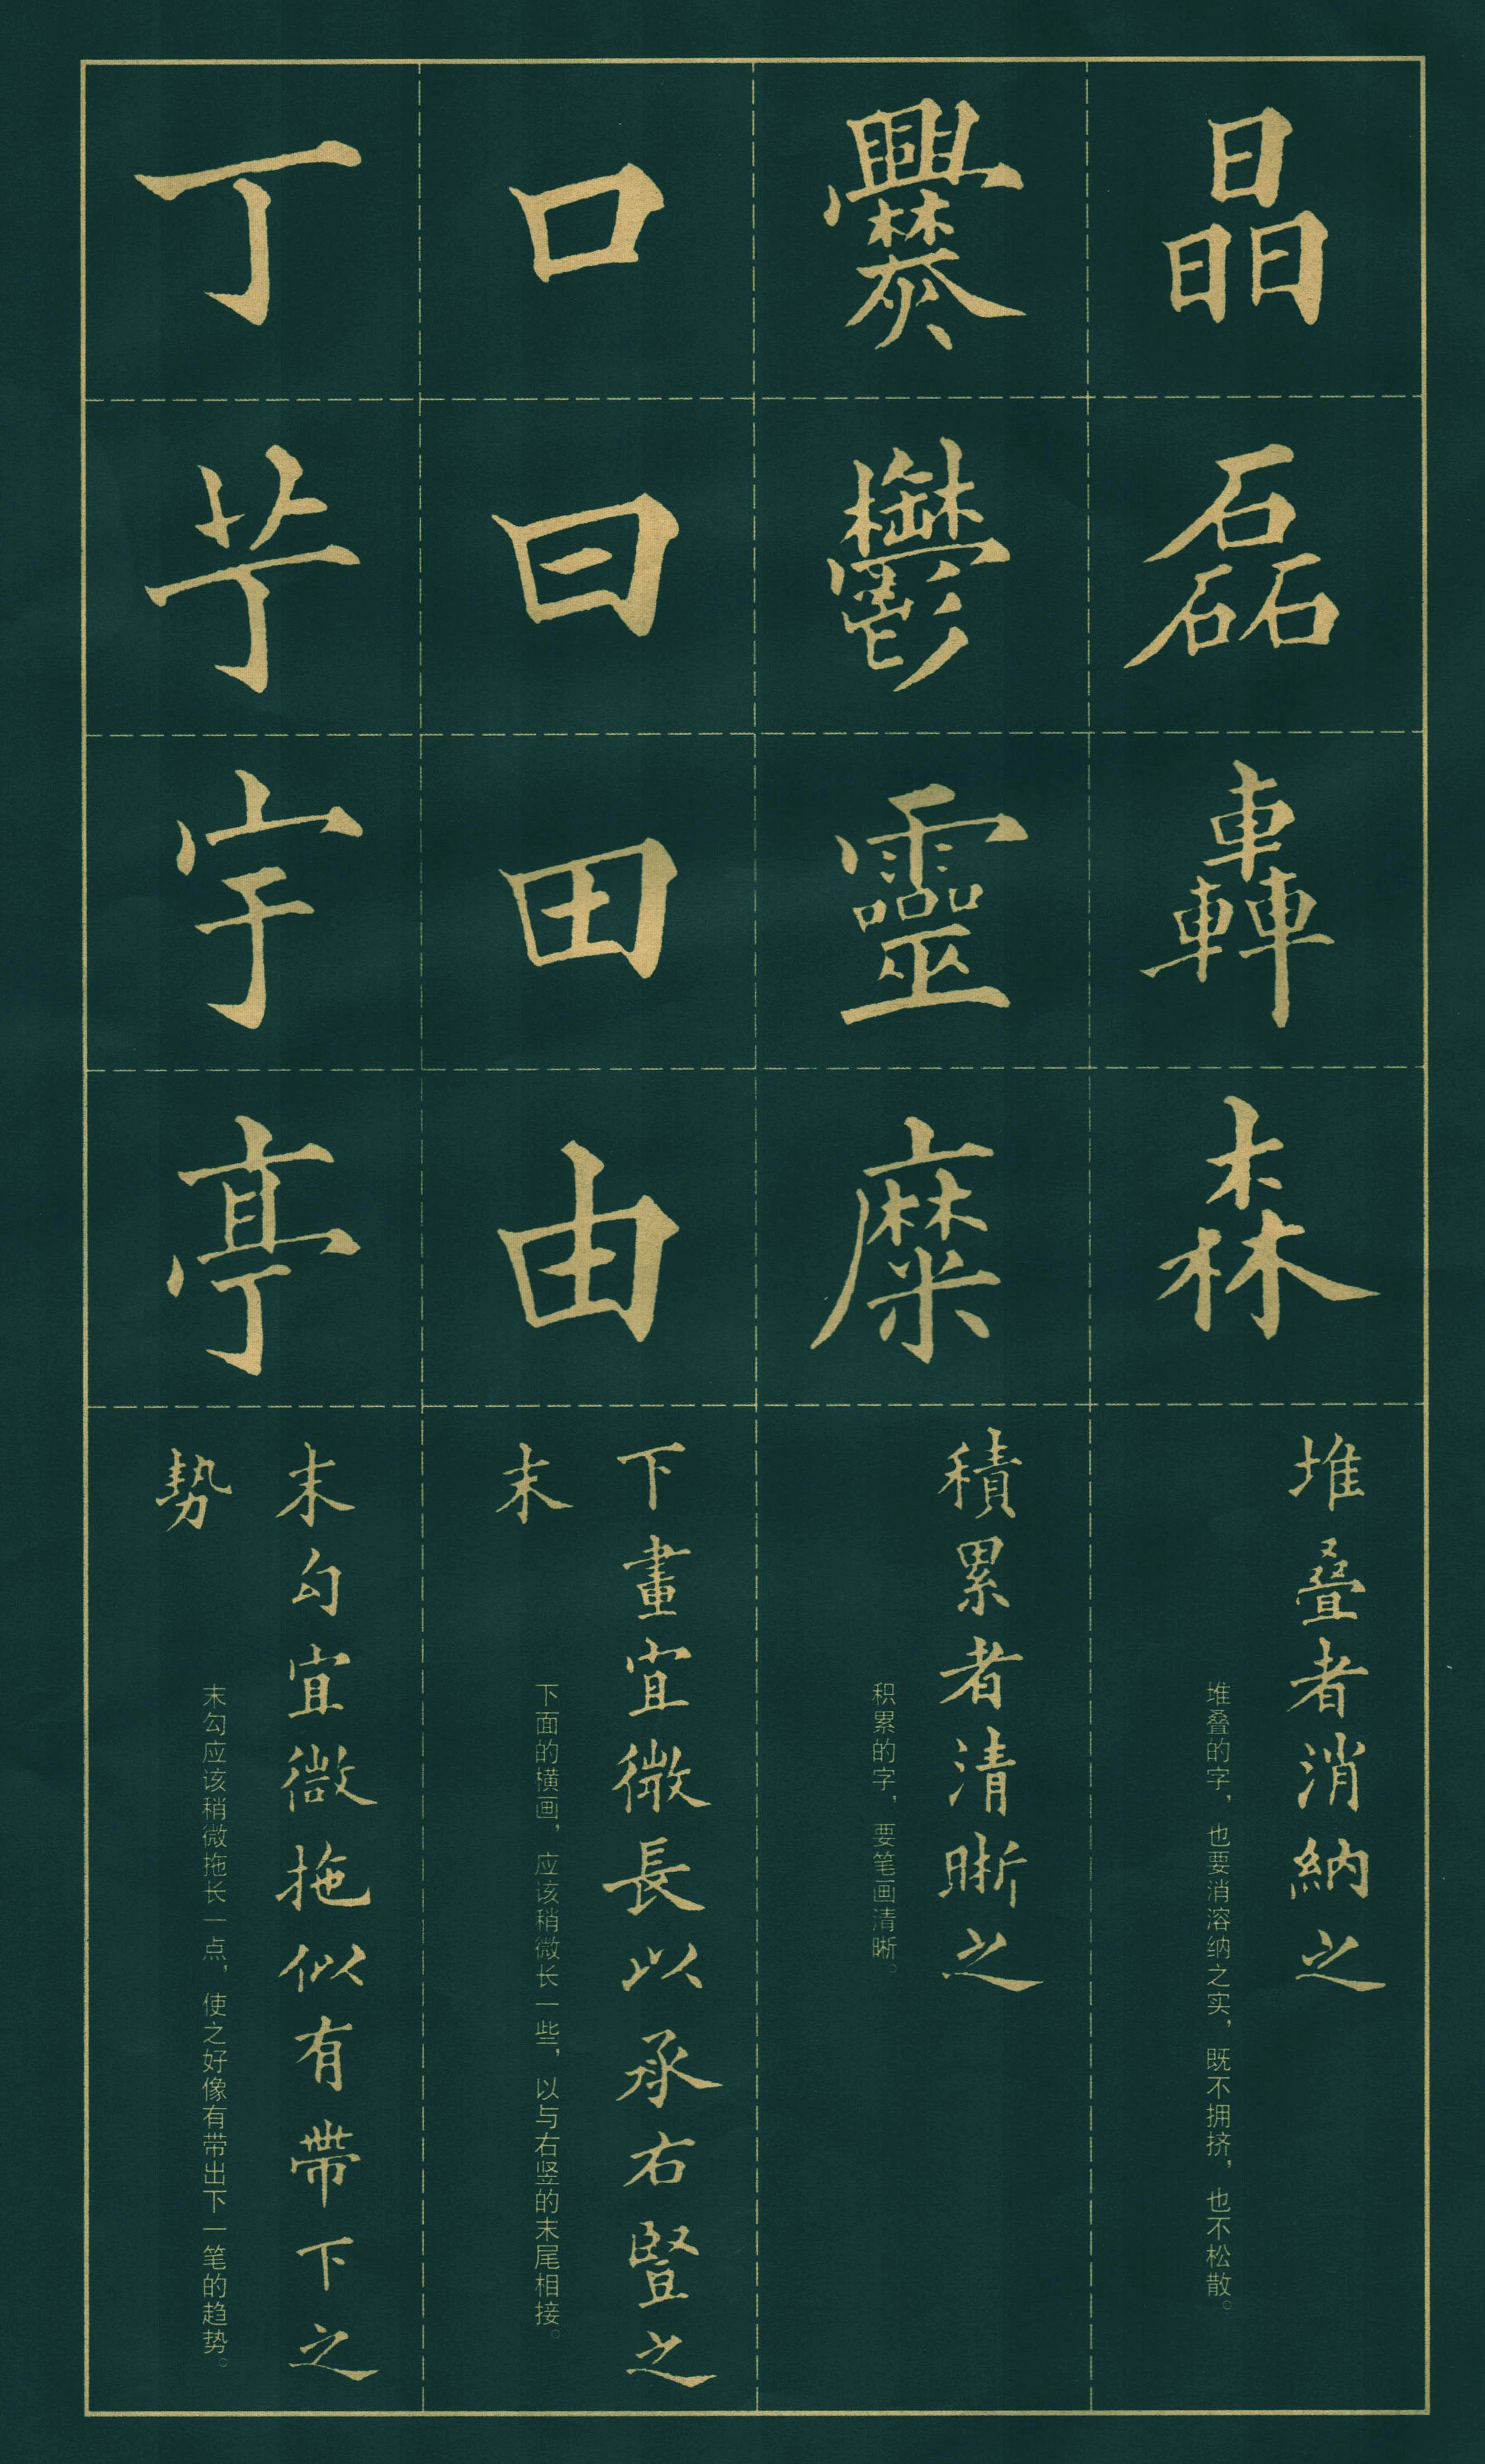 晶
磊
轟
森
堆叠者消納之
堆叠的字，也要消溶纳之实，既不拥挤，也不松散。
爨
鬱
靈
糜
積累者清晰之
积累的字，要笔画清晰。
口
曰
田
由
下畫宜微長以承右豎之
末
下面的横画，应该稍微长一些，以与右竖的末尾相接。
丁
芓
宇
亭
末勾宜微拖似有帶下之
勢
末勾应该稍微拖长一点，使之好像有带出下一笔的趋势。